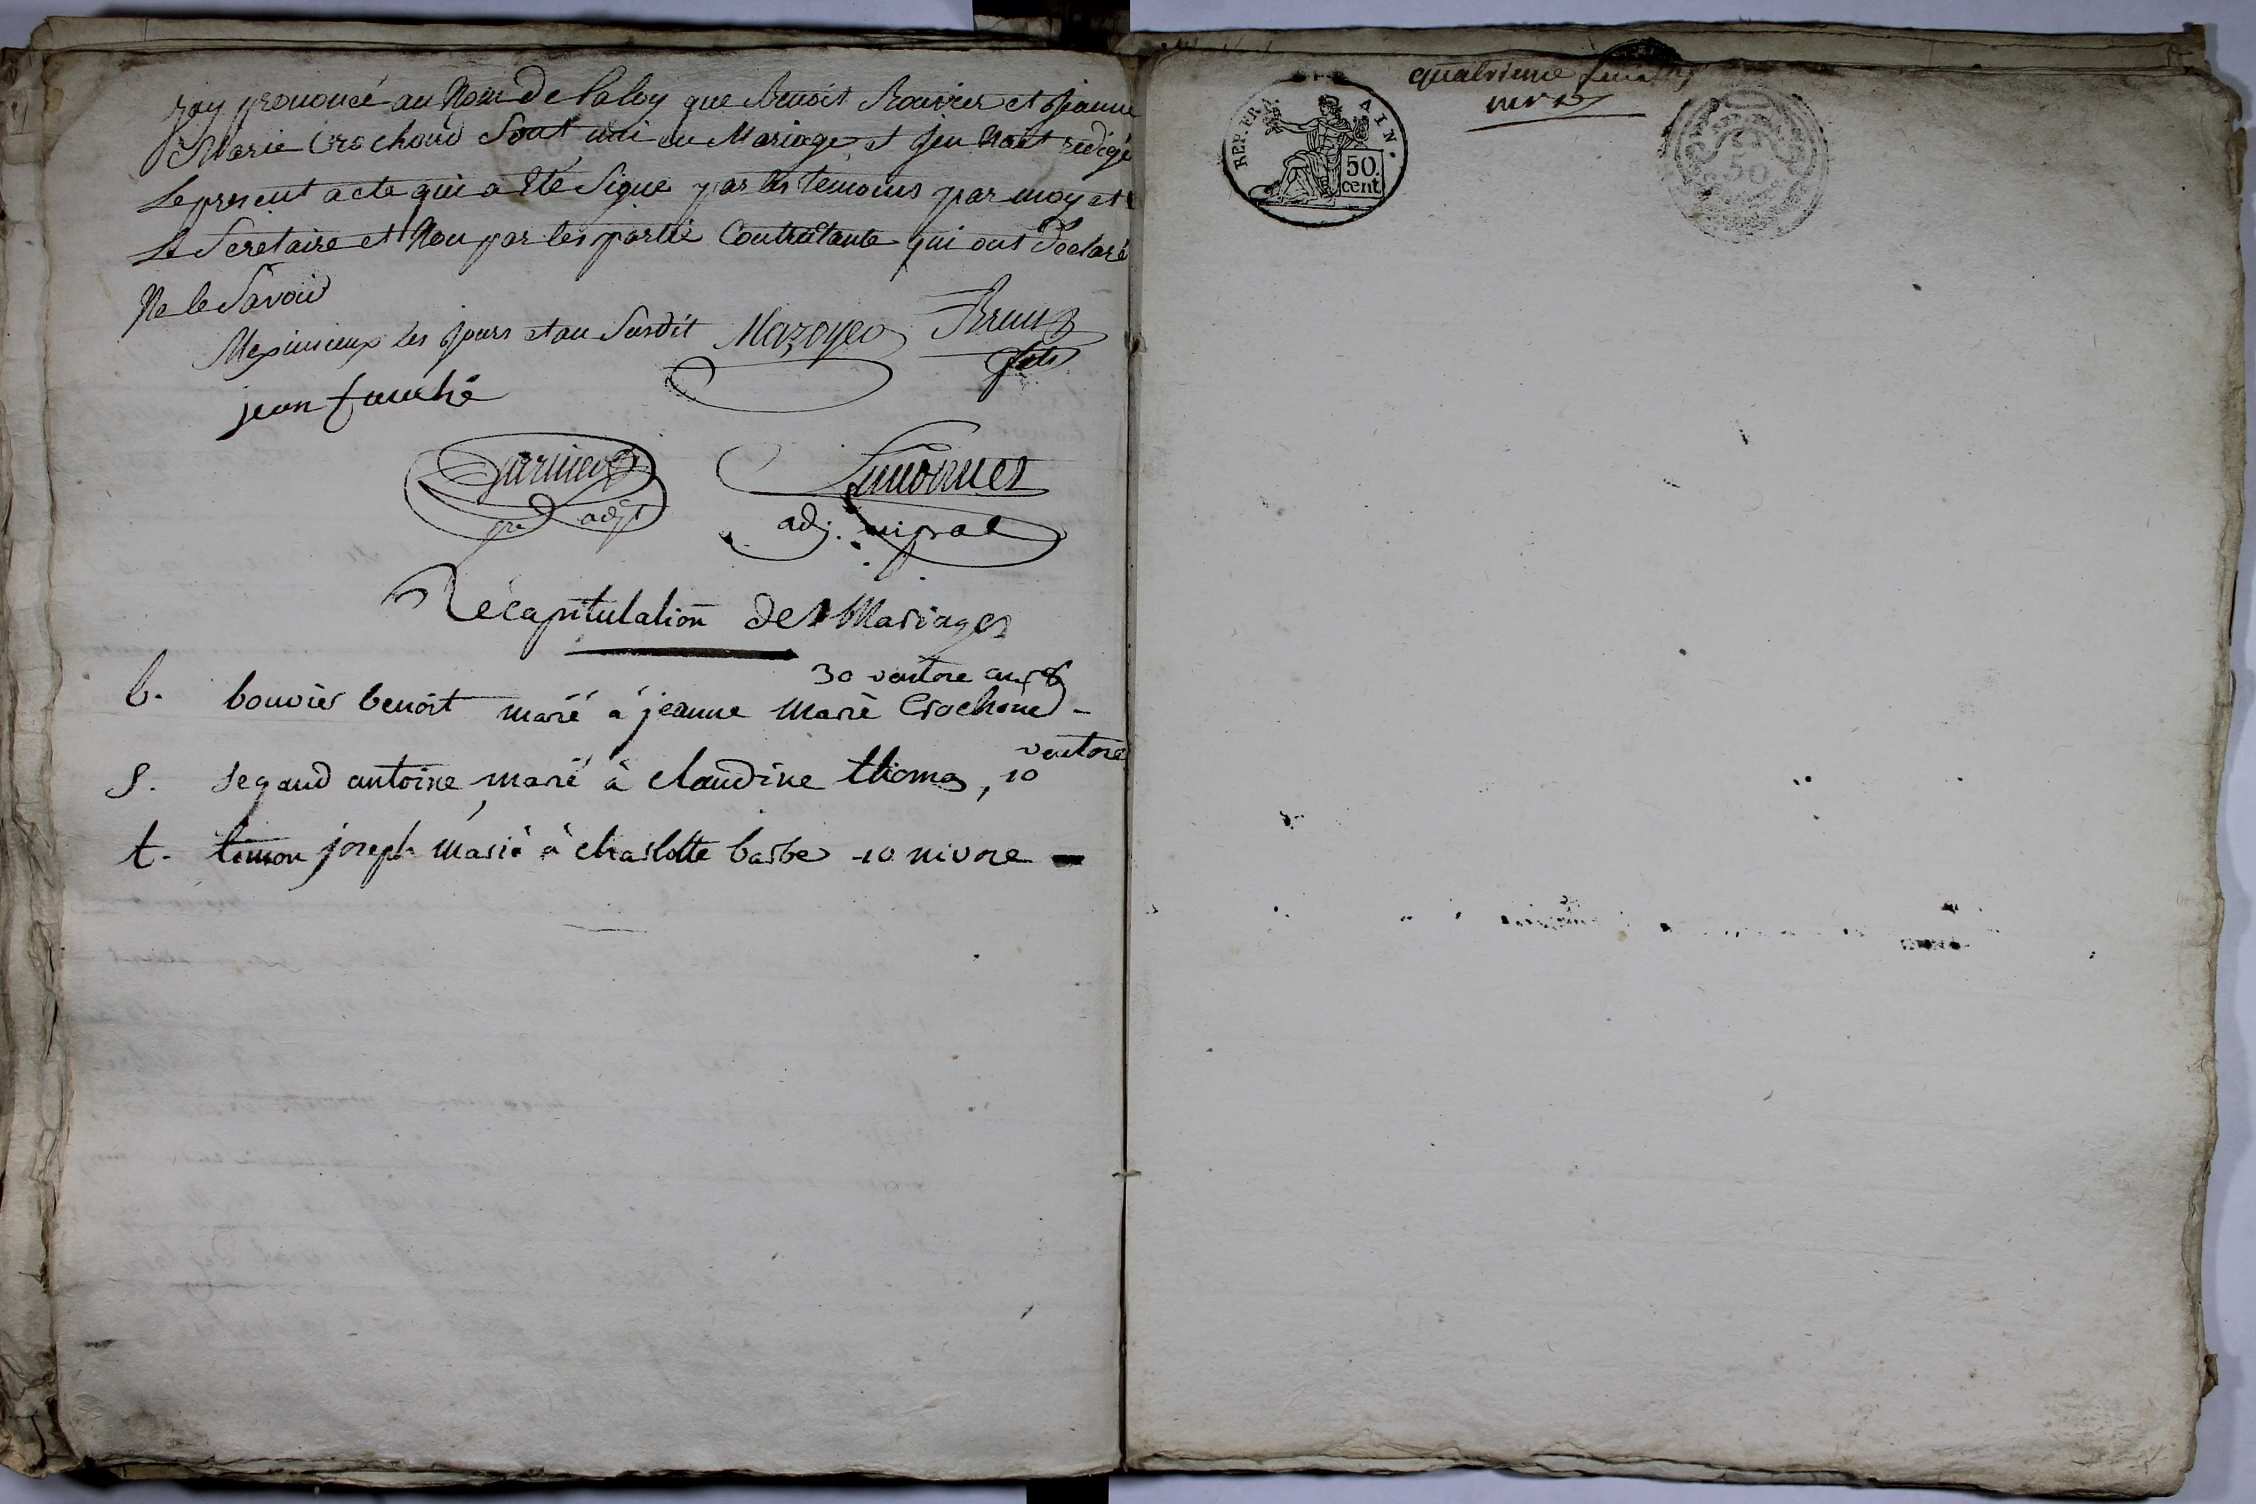 jay prononcé au Nom De la loy que Benoit Bouvier et Jeanne
Marie Crochond Sont uni en Mariage et jen nait redigé
Le present acte qui a Eté Signe par les temoins par moy et
Le Seretaire et Non par les partie Contratante qui ont Declaré
Ne le Savoir
Meximieux les jours et an Susdit Mazoyer Brun
fils
jean fauché
adjt
adj. mpal
Récapitulation des Mariages
30 ventose an 8
b. bouvier benoit marié à jeanne Marie Crochond -
ventose
S. segaud antoine marié à claudine thomas, 10
t. timon joseph Marié à charlotte barbe 10 nivose
quatrieme feuillet
REP. FRA. AIN.
50.
cent
50